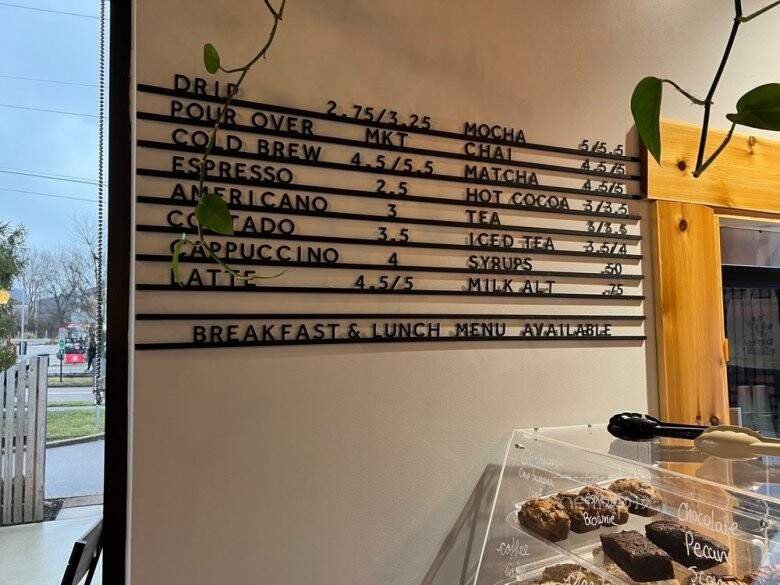 DRIP 2.75/3.25
POUR OVER MKT
COLD BREW 4.5/5.5
ESPRESSO 2.5
AMERICANO 3
CORTADO 3.5
CAPPUCCINO 4
LATTE 4.5/5
MOCHA 5/5.5
CHAI 4.5/5
MATCHA 4.5/5
HOT COCOA 3/3.5
TEA 3/3.5
ICED TEA 3.5/4
SYRUPS .50
MILK ALT .75
BREAKFAST & LUNCH MENU AVAILABLE
Brownie
coffee
Chocolate
Pecan